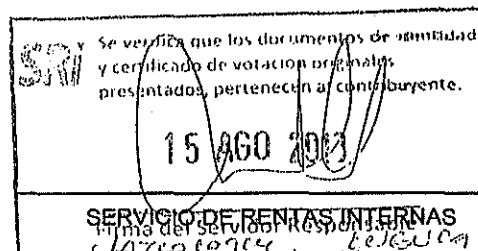 SRi Se verifica que los documentos de identidad
y certificado de votación originales
presentados, pertenecen al contribuyente.
15 AGO
SERVICIO DE RENTAS INTERNAS
Firma del Servidor Responsable